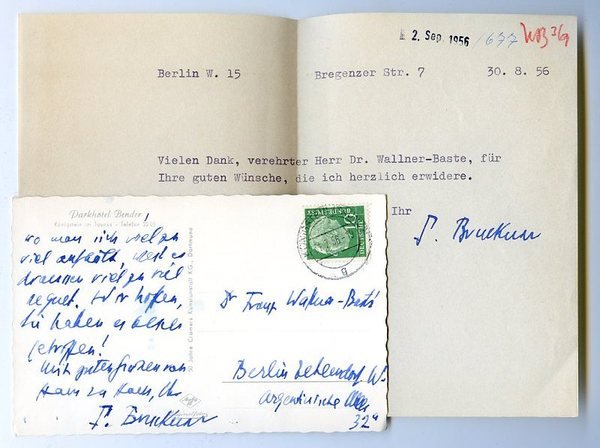 2. Sep. 1956 1677
Berlin W. 15 Bregenzer Str. 7 30. 8. 56
Vielen Dank, verehrter Herr Dr. Wallner-Baste, für
Ihre guten Wünsche, die ich herzlich erwidere.
Ihr
F. Bruckner
Parkhotel Bender
Königstein im Taunus - Telefon
wo man sich viel zu
viel aufhält, weil es
draussen viel zu viel
regnet. Wir hoffen,
Sie haben es besser
getroffen!
Mit guten Grüssen von
Haus zu Haus, Ihr
F. Bruckner
Dr Franz Wallner-Basté
Berlin Zehlendorf W.
Argentinische Allee
32a
50 Jahre Cramers Kunstanstalt KG., Dortmund
DEUTSCHE
BUNDESPOST